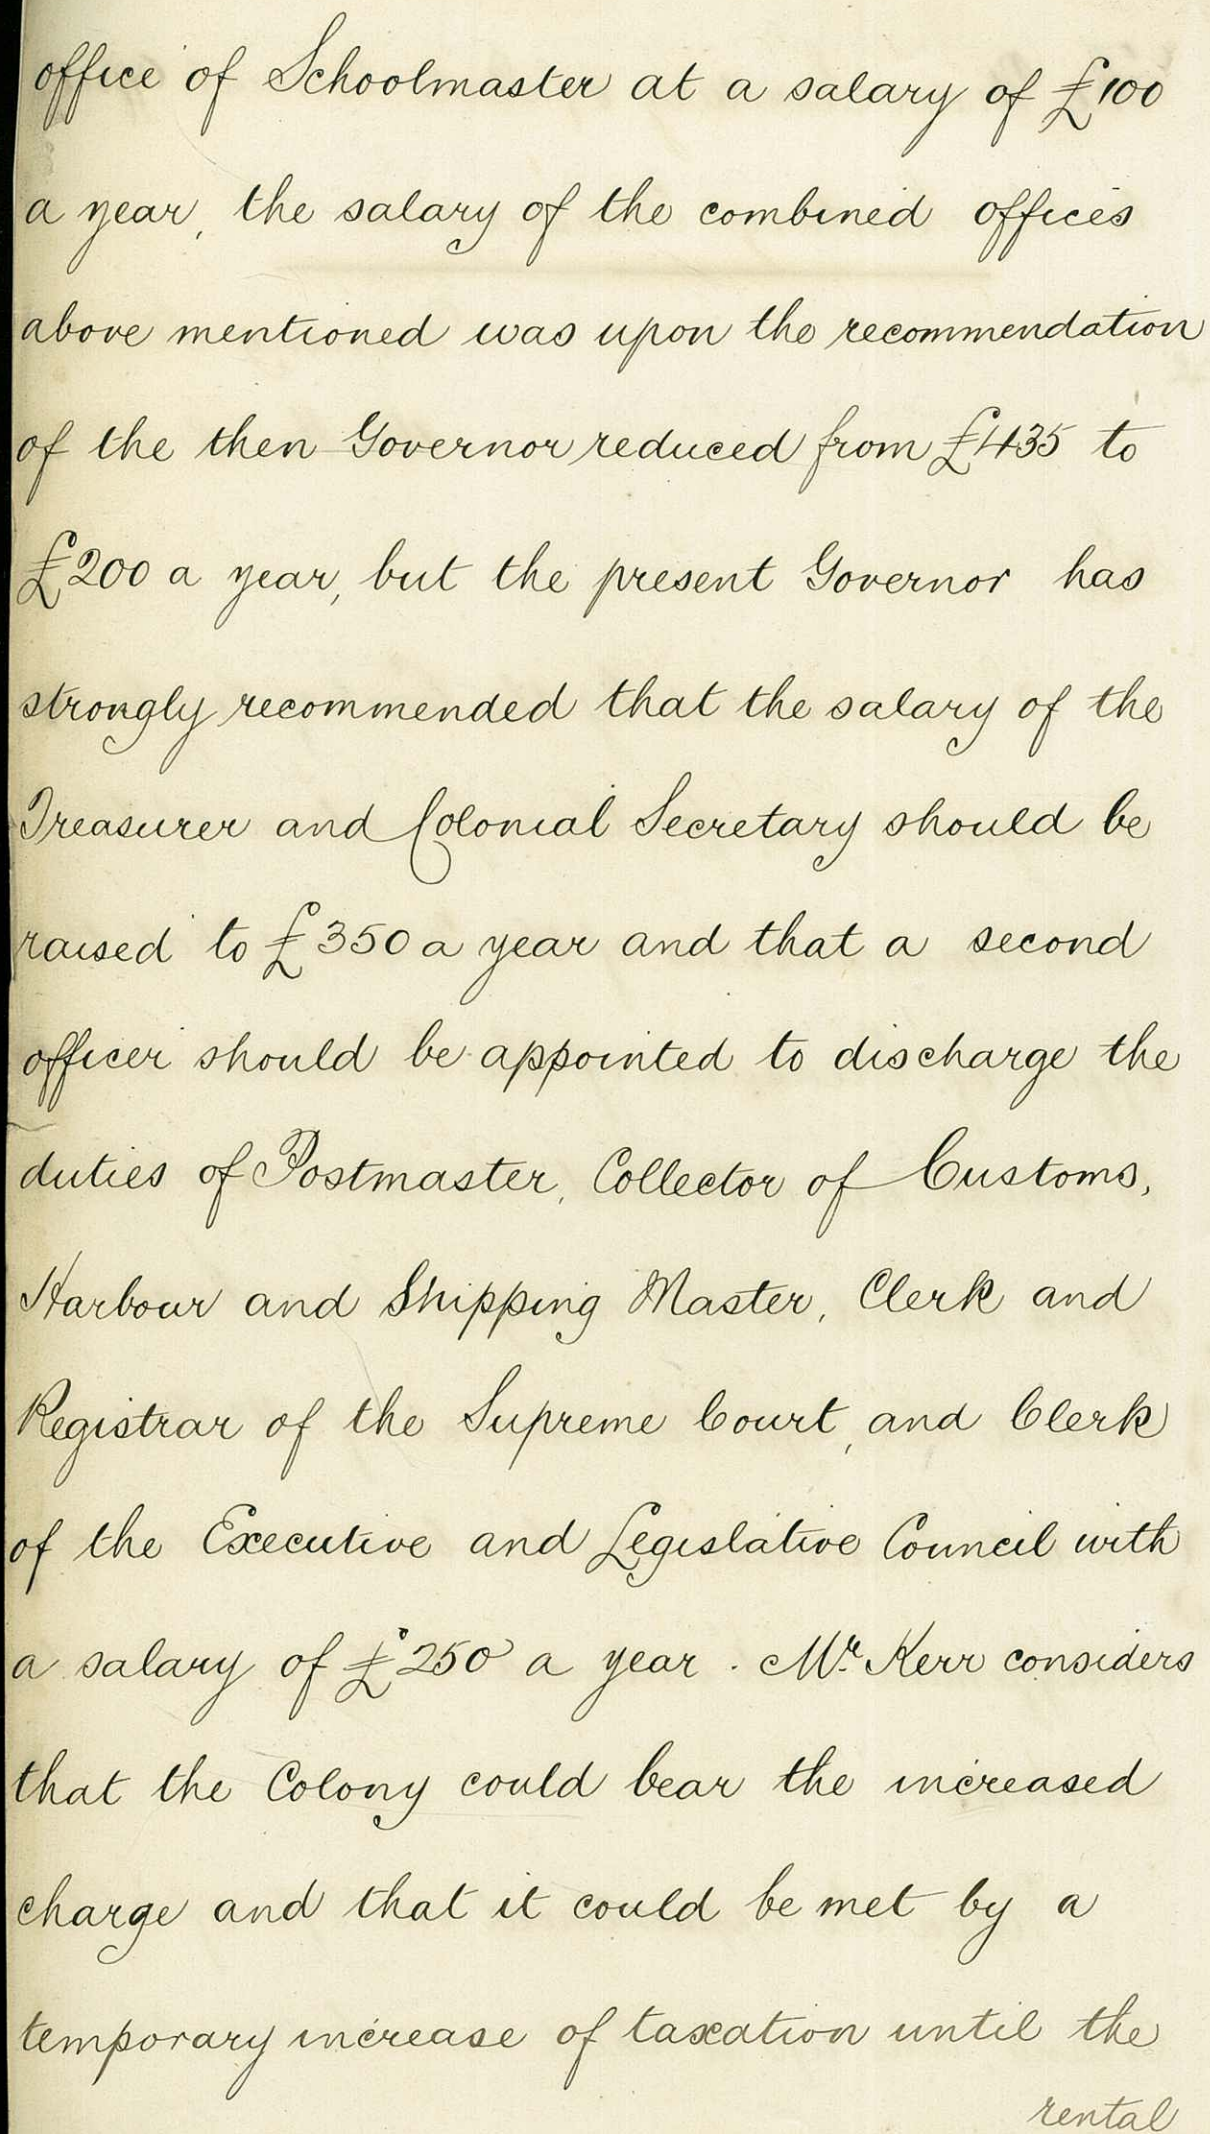 office of Schoolmaster at a salary of £100
a year, the salary of the combined offices
above mentioned was upon the recommendation
of the then Governor reduced from £435 to
£200 a year, but the present Governor has
strongly recommended that the salary of the
Treasurer and Colonial Secretary should be
raised to £350 a year and that a second
officer should be appointed to discharge the
duties of Postmaster, Collector of Customs,
Harbour and Shipping Master, Clerk and
Registrar of the Supreme Court, and Clerk
of the Executive and Legislative Council with
a salary of £250 a year. Mr. Kerr considers
that the Colony could bear the increased
charge and that it could be met by a
temporary increase of taxation until the
rental